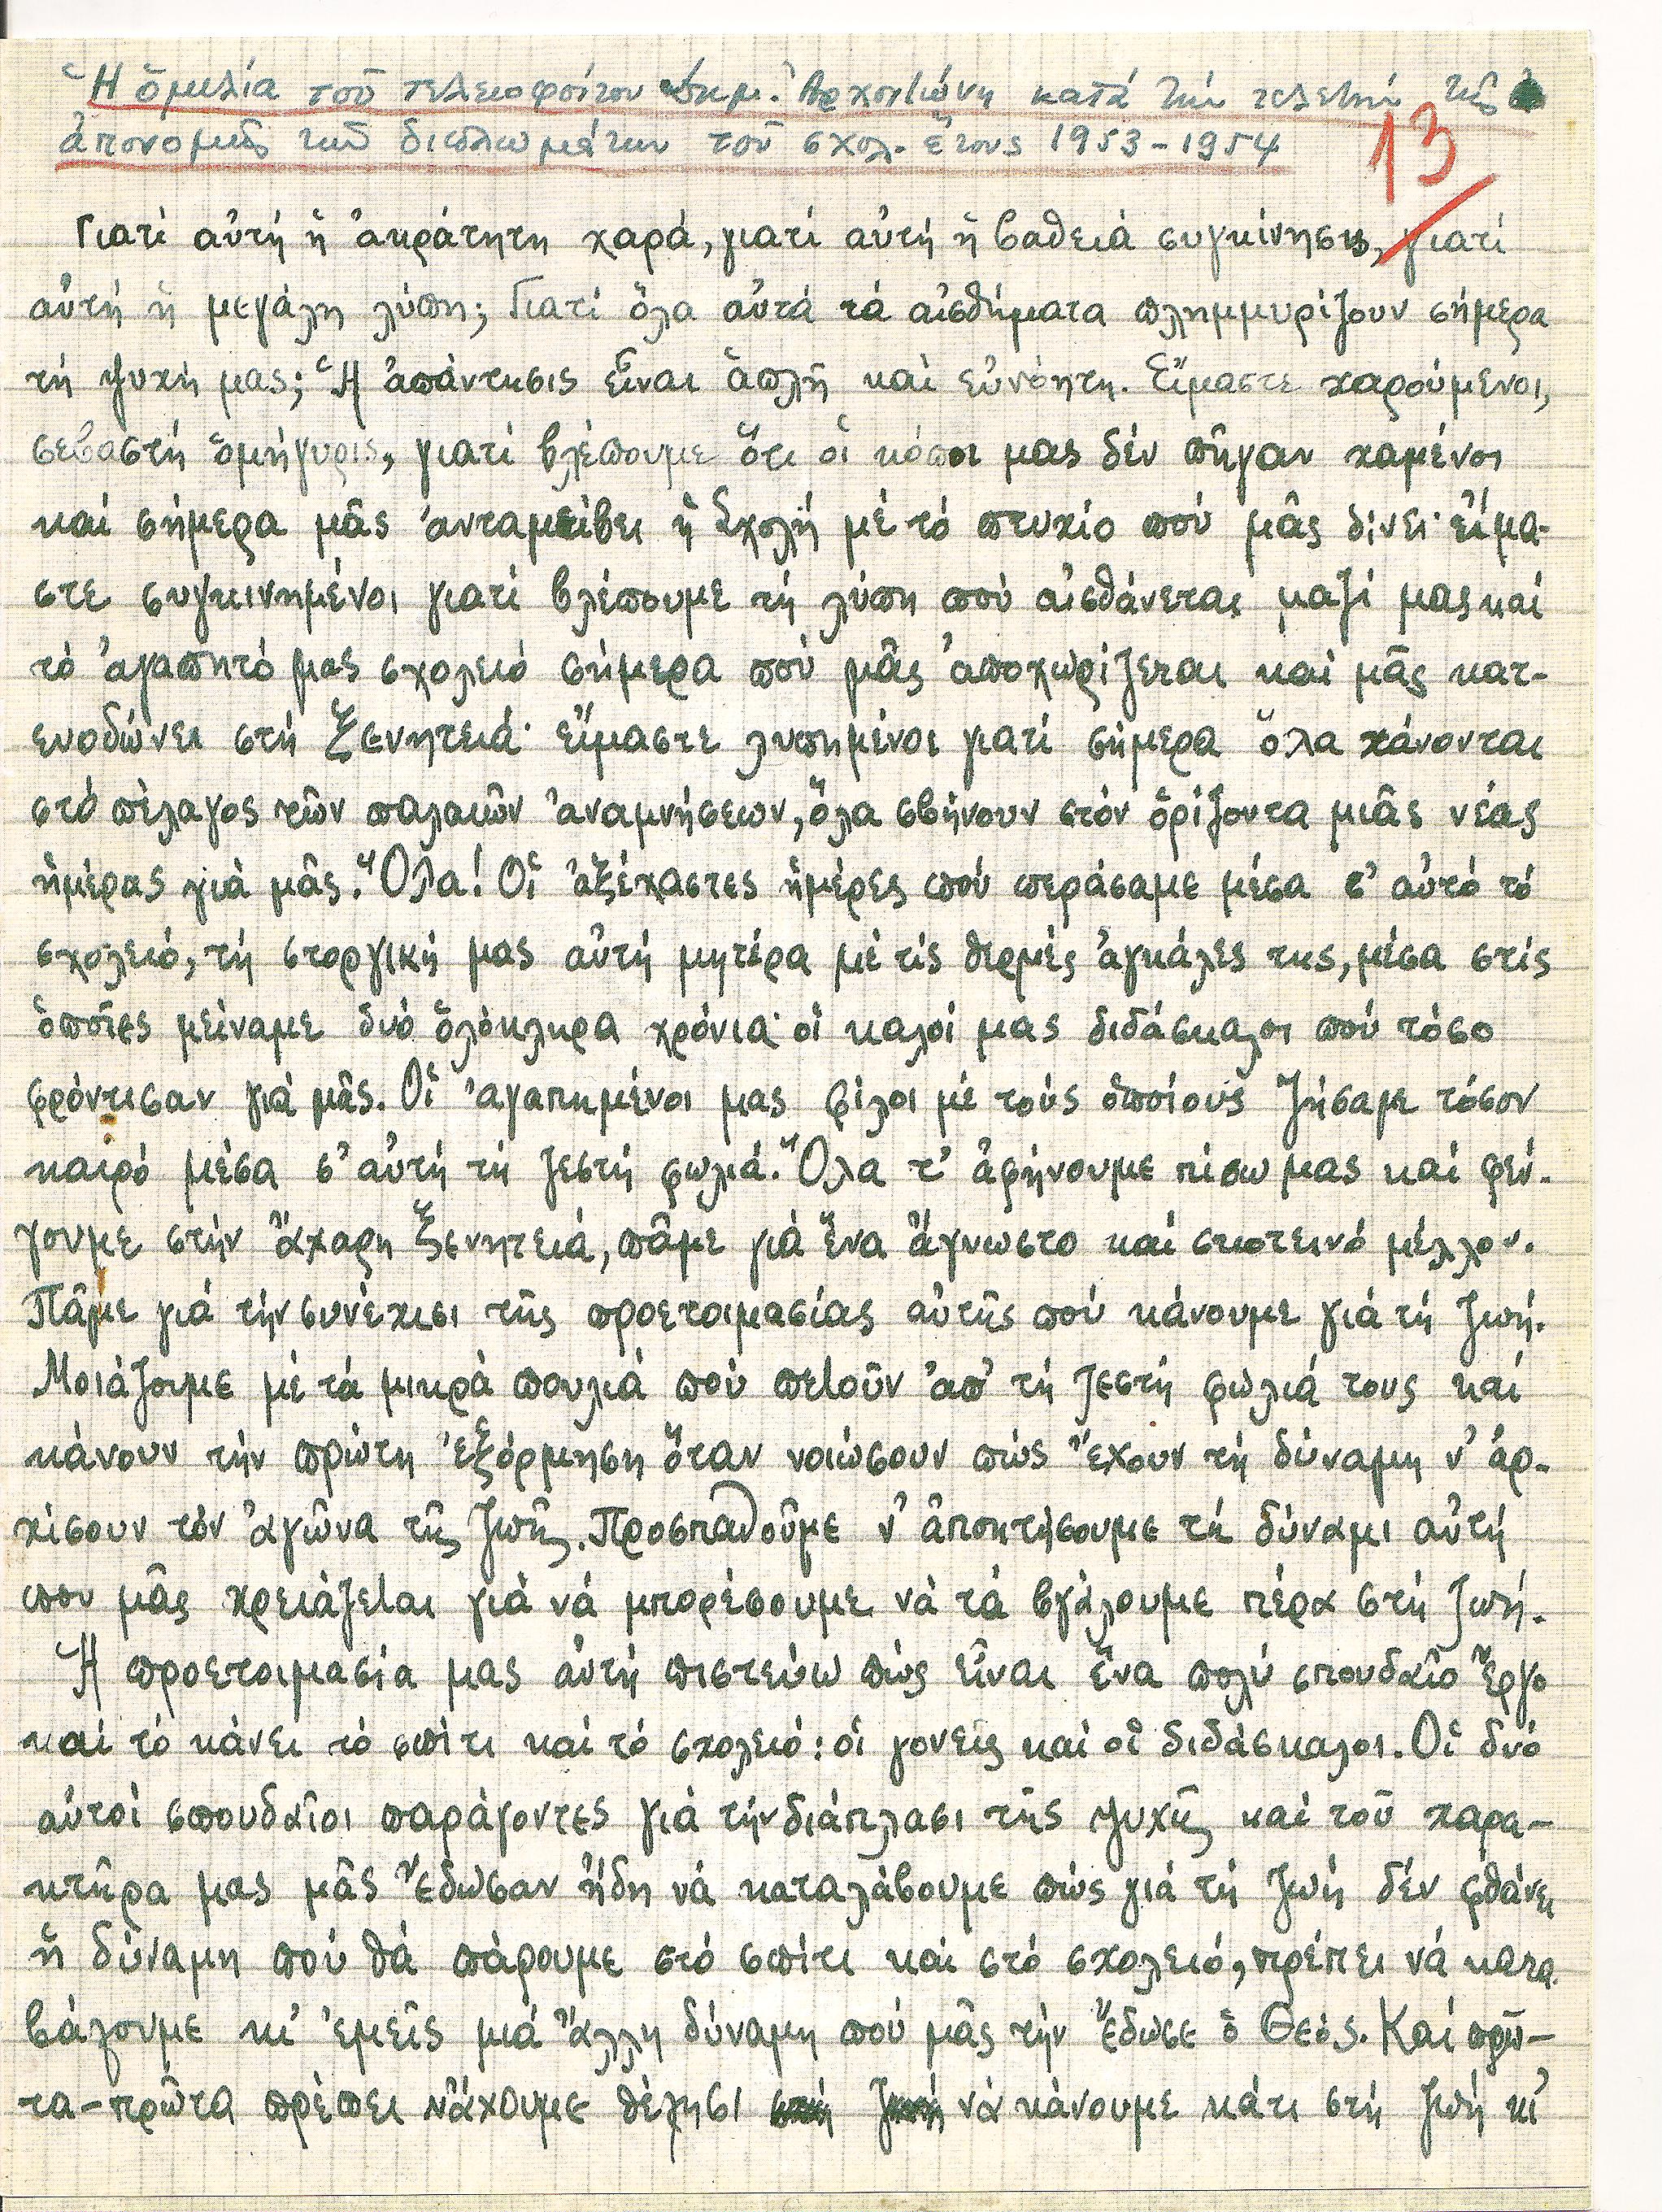 Ἡ ὁμιλία τοῦ τελειοφοίτου Δημ. Ἀρχοντώνη κατά τήν τελετήν τῆς
ἀπονομῆς τῶν διπλωμάτων τοῦ σχολ. ἔτους 1953-1954
13
Γιατί αὐτή ἡ ἀκράτητη χαρά, γιατί αὐτή ἡ βαθειά συγκίνησις, γιατί
αὐτή ἡ μεγάλη λύπη; Γιατί ὅλα αὐτά τά αἰσθήματα πλημμυρίζουν σήμερα
τή ψυχή μας; Ἡ ἀπάντησις εἶναι ἁπλῆ καί εὐνόητη. Εἴμαστε χαρούμενοι,
σεβαστή ὁμήγυρις, γιατί βλέπουμε ὅτι οἱ κόποι μας δέν πῆγαν χαμένοι
καί σήμερα μᾶς ἀνταμείβει ἡ Σχολή μέ τό πτυχίο πού μᾶς δίνει· εἴμα-
στε συγκινημένοι γιατί βλέπουμε τή λύπη πού αἰσθάνεται μαζί μας καί
τό ἀγαπητό μας σχολειό σήμερα πού μᾶς ἀποχωρίζεται καί μᾶς κατ-
ευοδώνει στή ξενητειά· εἴμαστε λυπημένοι γιατί σήμερα ὅλα χάνονται
στό πέλαγος τῶν παλαιῶν ἀναμνήσεων, ὅλα σβήνουν στόν ὁρίζοντα μιᾶς νέας
ἡμέρας γιά μᾶς. Ὅλα! Οἱ ἀξέχαστες ἡμέρες πού περάσαμε μέσα σ' αὐτό τό
σχολειό, τή στοργική μας αὐτή μητέρα μέ τίς θερμές ἀγκάλες της, μέσα στίς
ὁποῖες μείναμε δυό ὁλόκληρα χρόνια· οἱ καλοί μας διδάσκαλοι πού τόσο
φρόντισαν γιά μᾶς. Οἱ ἀγαπημένοι μας φίλοι μέ τούς ὁποίους ζήσαμε τόσον
καιρό μέσα σ' αὐτή τή ζεστή φωλιά. Ὅλα τ' ἀφήνουμε πίσω μας καί φεύ-
γουμε στήν ἄχαρη ξενητειά, πᾶμε γιά ἕνα ἄγνωστο καί σκοτεινό μέλλον.
Πᾶμε γιά τήν συνέχισι τῆς προετοιμασίας αὐτῆς πού κάνουμε γιά τή ζωή.
Μοιάζουμε μέ τά μικρά πουλιά πού πετοῦν ἀπ' τή ζεστή φωλιά τους καί
κάνουν τήν πρώτη ἐξόρμηση ὅταν νοιώσουν πώς ἔχουν τή δύναμη ν' ἀρ-
χίσουν τόν ἀγῶνα τῆς ζωῆς. Προσπαθοῦμε ν' ἀποκτήσουμε τή δύναμι αὐτή
που μᾶς χρειάζεται γιά νά μπορέσουμε νά τά βγάλουμε πέρα στή ζωή.
Ἡ προετοιμασία μας αὐτή πιστεύω πώς εἶναι ἕνα πολύ σπουδαῖο ἔργο
καί τό κάνει τό σπίτι καί τό σχολειό: οἱ γονεῖς καί οἱ διδάσκαλοι. Οἱ δυό
αὐτοί σπουδαῖοι παράγοντες γιά τήν διάπλασι τῆς ψυχῆς καί τοῦ χαρα-
κτῆρα μας μᾶς ἔδωσαν ἤδη νά καταλάβουμε πώς γιά τή ζωή δέν φθάνει
ἡ δύναμη πού θά πάρουμε στό σπίτι καί στό σχολειό, πρέπει νά κατα
βάλουμε κι' ἐμεῖς μιά ἄλλη δύναμη πού μᾶς τήν ἔδωσε ὁ Θεός. Καί πρῶ-
τα-πρῶτα πρέπει νἄχουμε θέλησι στή ζωή νά κάνουμε κάτι στή ζωή κι'